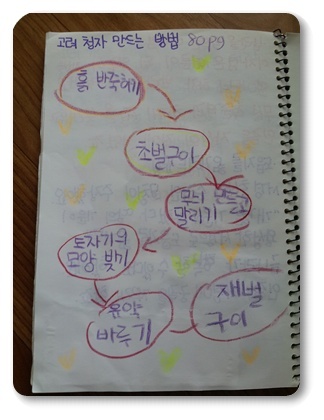 고려 청자 만드는 방법 80pg
흙 반죽하기
초벌구이
무늬 만들고
말리기
도자기의
모양 빚기
유약
바루기
재벌
구이